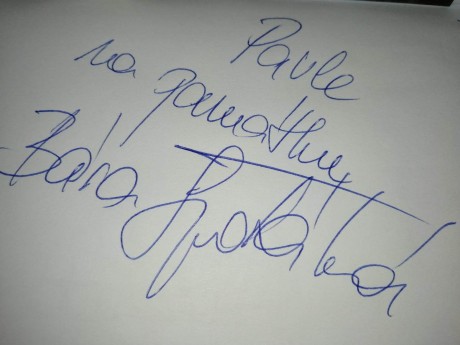 Pavle
na památku
Bára Špotáková